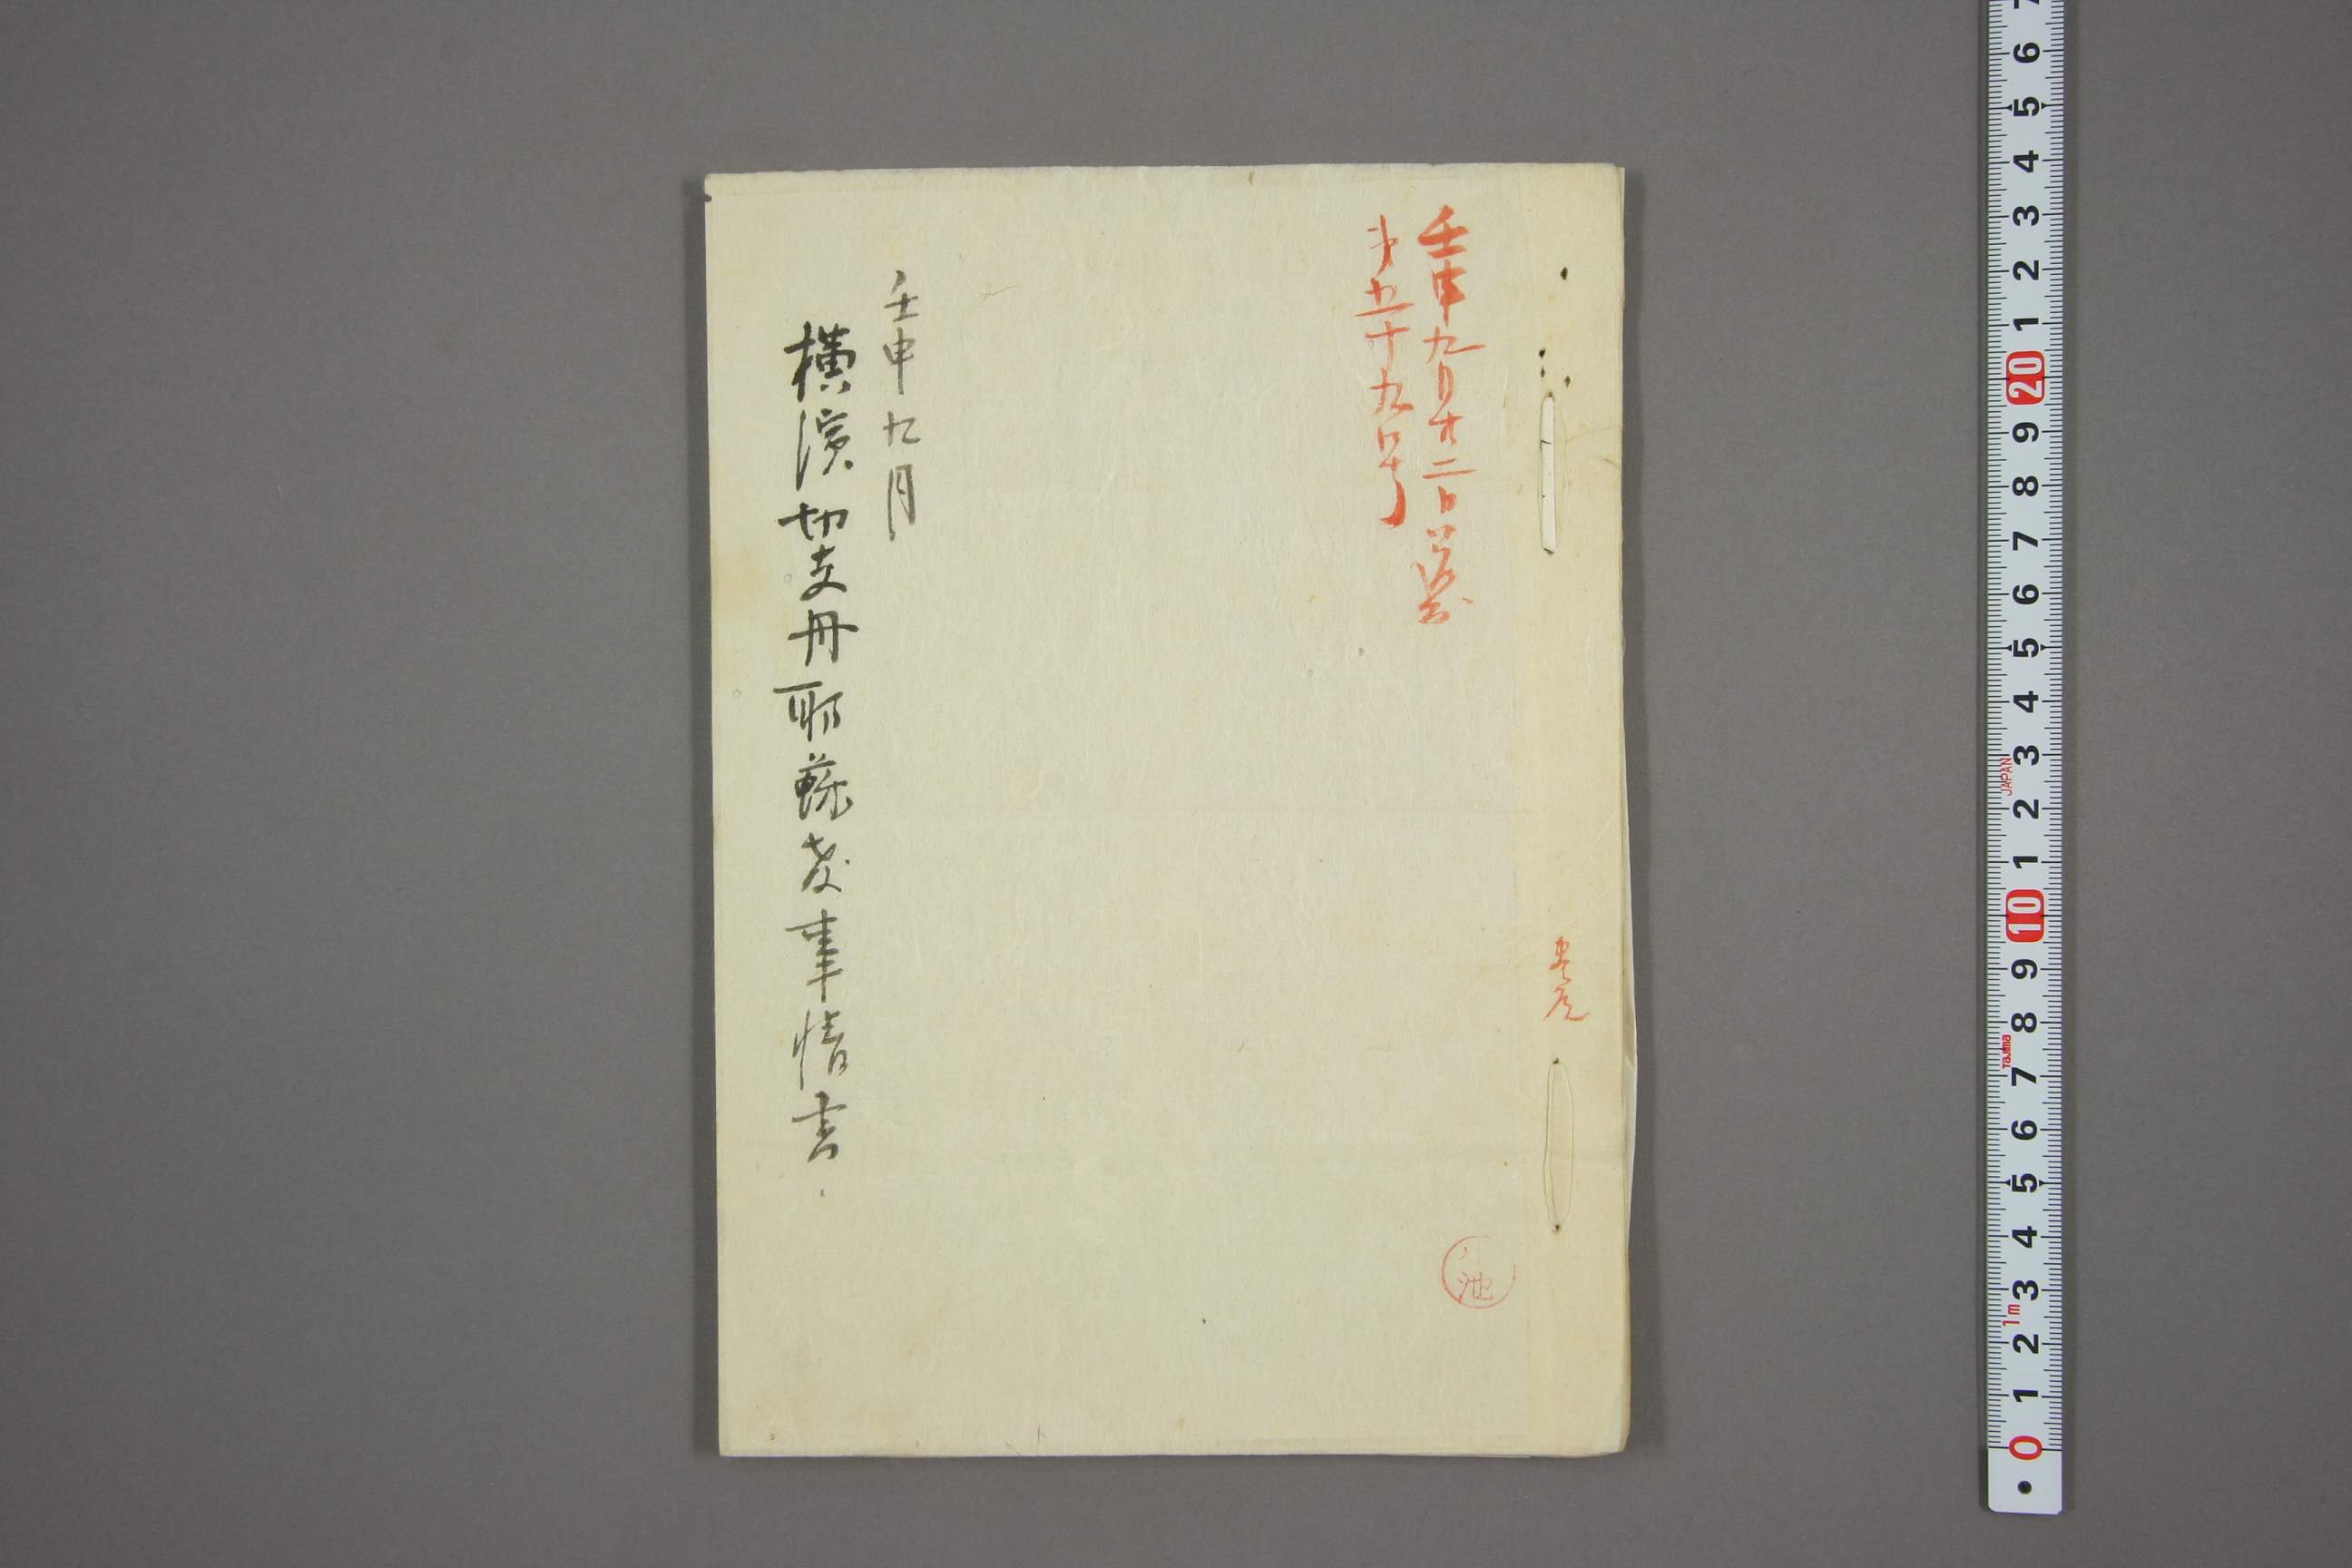 壬申九月廿二日
第五十九号
壬申九月
横濱切支丹耶蘇教事情書
池
7
6
5
4
3
2
1
20
9
8
7
6
5
4
3
2
1
10
9
8
7
6
5
4
3
2
1
0
JAPAN
Tajima
1m